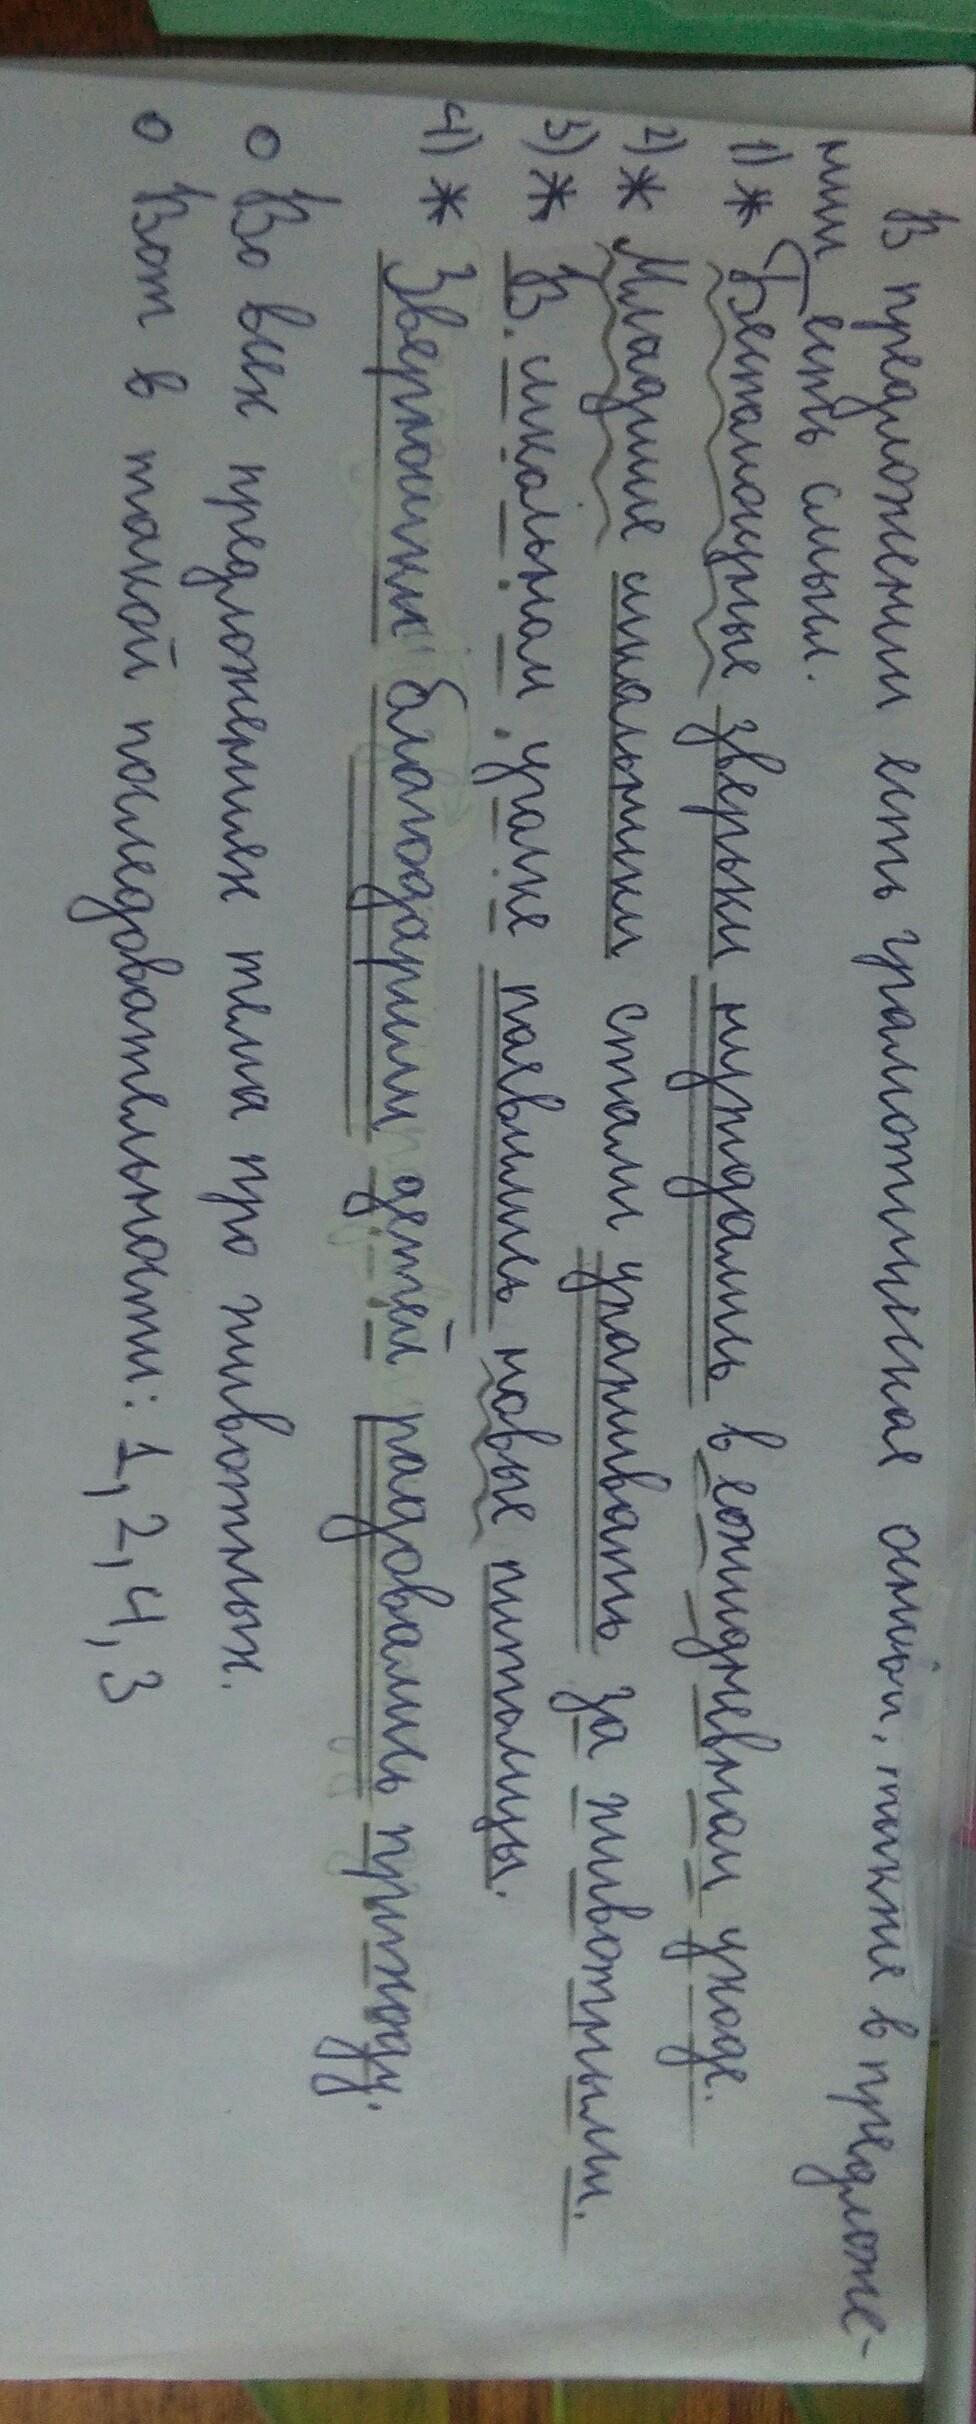 В предложении есть грамматическая основа, также в предложе-
нии есть смысл.
1) * Беспомощные зверьки нуждались в ежидневнам уходе.
2) * Младшие школьники стали ухаживать за животными.
3) * В. школьном уголке паевились новые питомцы.
4) * Зверюшки благодарили детей радовались приходу.
o Во всех предложениях тема про животных.
o Вот в такой последовательности: 1, 2, 4, 3